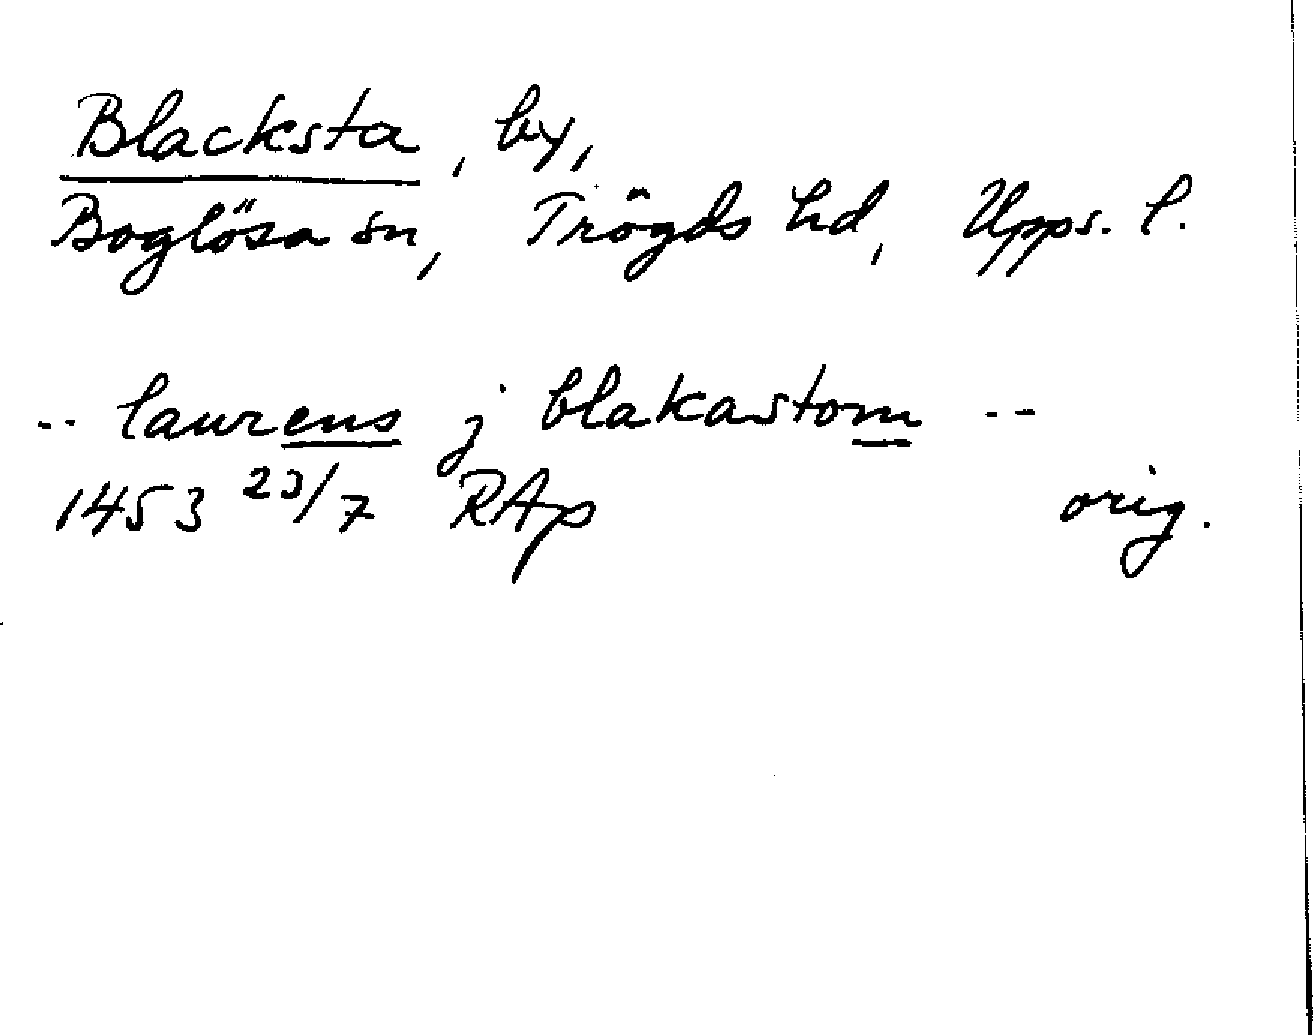 Blacksta, by,
Boglösa sn, Trögds hd, Upps. l.
-- laurens j blakastom --
1453 23/7 RAp orig.